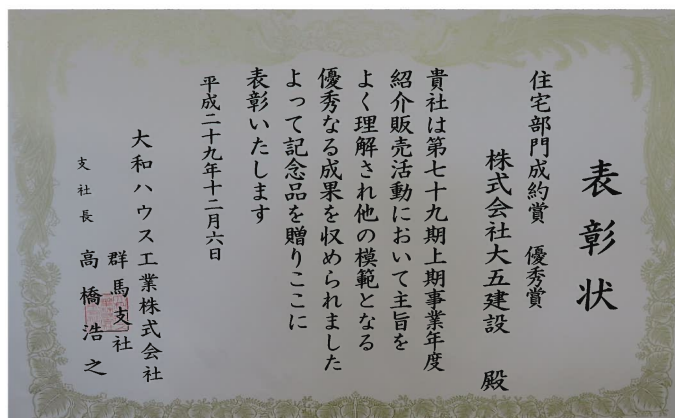 表彰状
住宅部門成約賞 優秀賞
株式会社大五建設 殿
貴社は第七十九期上期事業年度
紹介販売活動において主旨を
よく理解され他の模範となる
優秀なる成果を収められました
よって記念品を贈りここに
表彰いたします
平成二十九年十二月六日
大和ハウス工業株式会社
群馬支社
支社長 高橋浩之